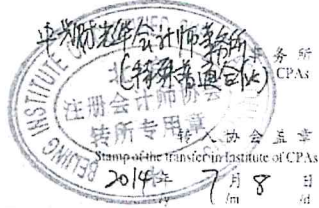 中兴财光华会计师事务所
事务所
(特殊普通合伙)
CPAs
BEIJING INSTITUTE OF
北
注册会计师协会
转所专用章
转入协会盖章
Stamp of the transfer-in Institute of CPAs
2014年7月8日
/y /m /d